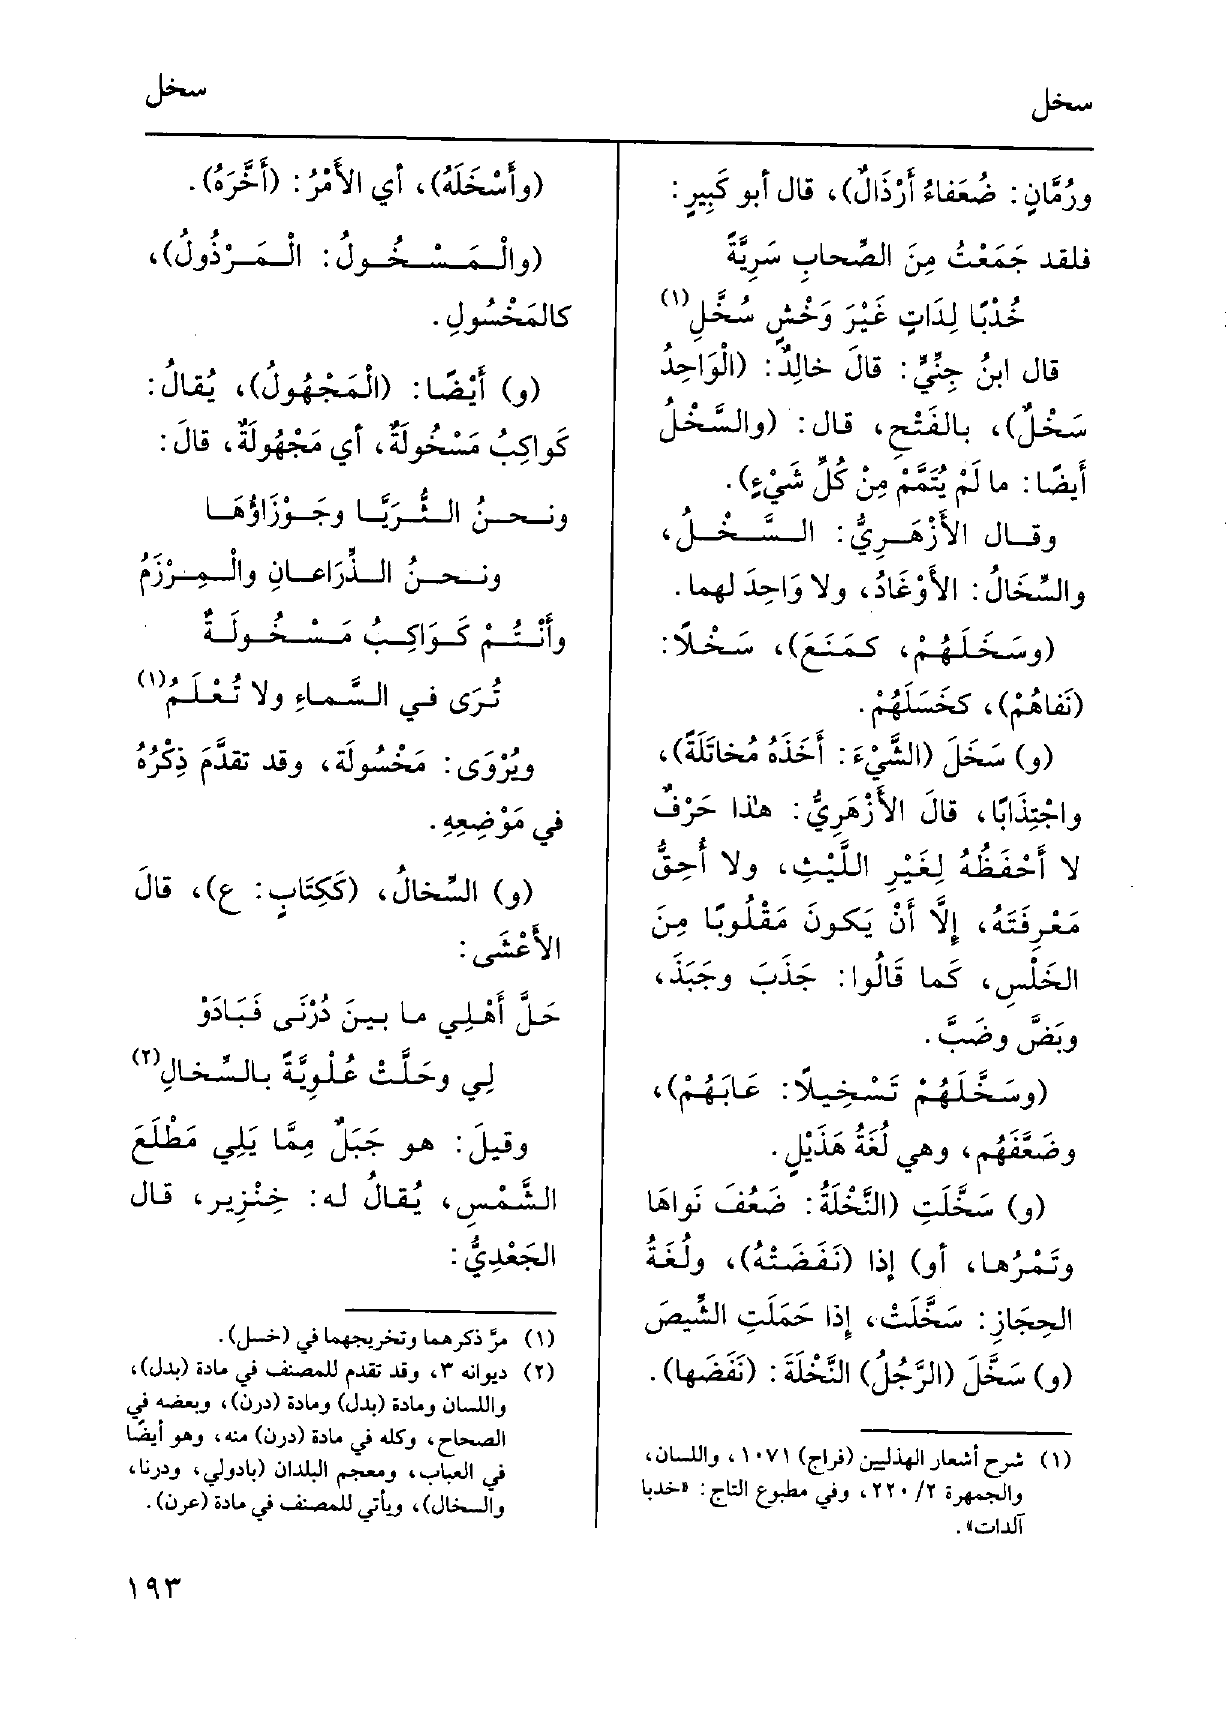 سخل
سخل
ورُمَّانٍ: ضُعَفاءُ أَرْذَالٌ)، قال أبو كَبِيرٍ:
فلقد جَمَعْتُ مِنَ الصِّحابِ سَرِيَّةً
خُدْبًا لِدَاتٍ غَيْرَ وَخْشٍ سُخَّلِ(١)
قال ابنُ جِنِّيٍّ: قالَ خالِدٌ: (الْوَاحِدُ
سَخْلٌ)، بالفَتْحِ، قال: (والسَّخْلُ
أيضًا: ما لَمْ يُتَمَّمْ مِنْ كُلِّ شَيْءٍ).
وقال الأَزْهَرِيُّ: السَّخْلُ،
والسِّخَالُ: الأَوْغَادُ، ولا وَاحِدَ لهما.
(وسَخَلَهُمْ، كمَنَعَ)، سَخْلاً:
(نَفاهُمْ)، كخَسَلَهُمْ.
(و) سَخَلَ (الشَّيْءَ: أَخَذَهُ مُخاتَلَةً)،
واجْتِذَابًا، قالَ الأَزْهَرِيُّ: هٰذا حَرْفٌ
لا أَحْفَظُهُ لِغَيْرِ اللَّيْثِ، ولا أَحِقُّ
مَعْرِفَتَهُ، إِلَّا أَنْ يَكونَ مَقْلُوبًا مِنَ
الخَلْسِ، كما قَالُوا: جَذَبَ وجَبَذَ،
وبَضَّ وضَبَّ.
(وسَخَّلَهُمْ تَسْخِيلاً: عَابَهُمْ)،
وضَعَّفَهُم، وهي لُغَةُ هُذَيْلٍ.
(و) سَخَّلَتِ (النَّخْلَةُ: ضَعُفَ نَواهَا
وتَمْرُها، أو) إذا (نَفَضَتْهُ)، ولُغَةُ
الحِجَازِ: سَخَّلَتْ، إِذا حَمَلَتِ الشِّيصَ
(و) سَخَّلَ (الرَّجُلُ) النَّخْلَةَ: (نَفَضَها).
(١) شرح أشعار الهذليين (فراج) ١٠٧١، واللسان،
والجمهرة ٢/ ٢٢٠، وفي مطبوع التاج: «خدبا
آلدات».
(وأَسْخَلَهُ)، أي الأَمْرُ: (أَخَّرَهُ).
(والْمَسْخُولُ: الْمَرْذُولُ)،
كالمَخْسُولِ.
(و) أَيْضًا: (الْمَجْهُولُ)، يُقالُ:
كَواكِبُ مَسْخُولَةٌ، أي مَجْهُولَةٌ، قالَ:
ونحنُ الثُّرَيَّا وجَوْزَاؤُهَا
ونحنُ الذِّرَاعانِ والمِرْزَمُ
وأَنْتُمْ كَوَاكِبُ مَسْخُولَةٌ
تُرَى في السَّماءِ ولا تُعْلَمُ(١)
ويُرْوَى: مَخْسُولَة، وقد تقدَّمَ ذِكْرُهُ
في مَوْضِعِهِ.
(و) السِّخالُ، (كَكِتَابٍ: ع)، قالَ
الأَعْشَى:
حَلَّ أَهْلِي ما بينَ دُرْنَى فَبَادَوْ
لِي وحَلَّتْ عُلْوِيَّةً بالسِّخالِ(٢)
وقيلَ: هو جَبَلٌ مِمَّا يَلِي مَطْلَعَ
الشَّمْسِ، يُقالُ له: خِنْزِير، قال
الجَعْدِيُّ:
(١) مرَّ ذكرهما وتخريجهما في (خسل).
(٢) ديوانه ٣، وقد تقدم للمصنف في مادة (بدل)،
واللسان ومادة (بدل) ومادة (درن)، وبعضه في
الصحاح، وكله في مادة (درن) منه، وهو أيضًا
في العباب، ومعجم البلدان (بادولي، ودرنا،
والسخال)، ويأتي للمصنف في مادة (عرن).
١٩٣